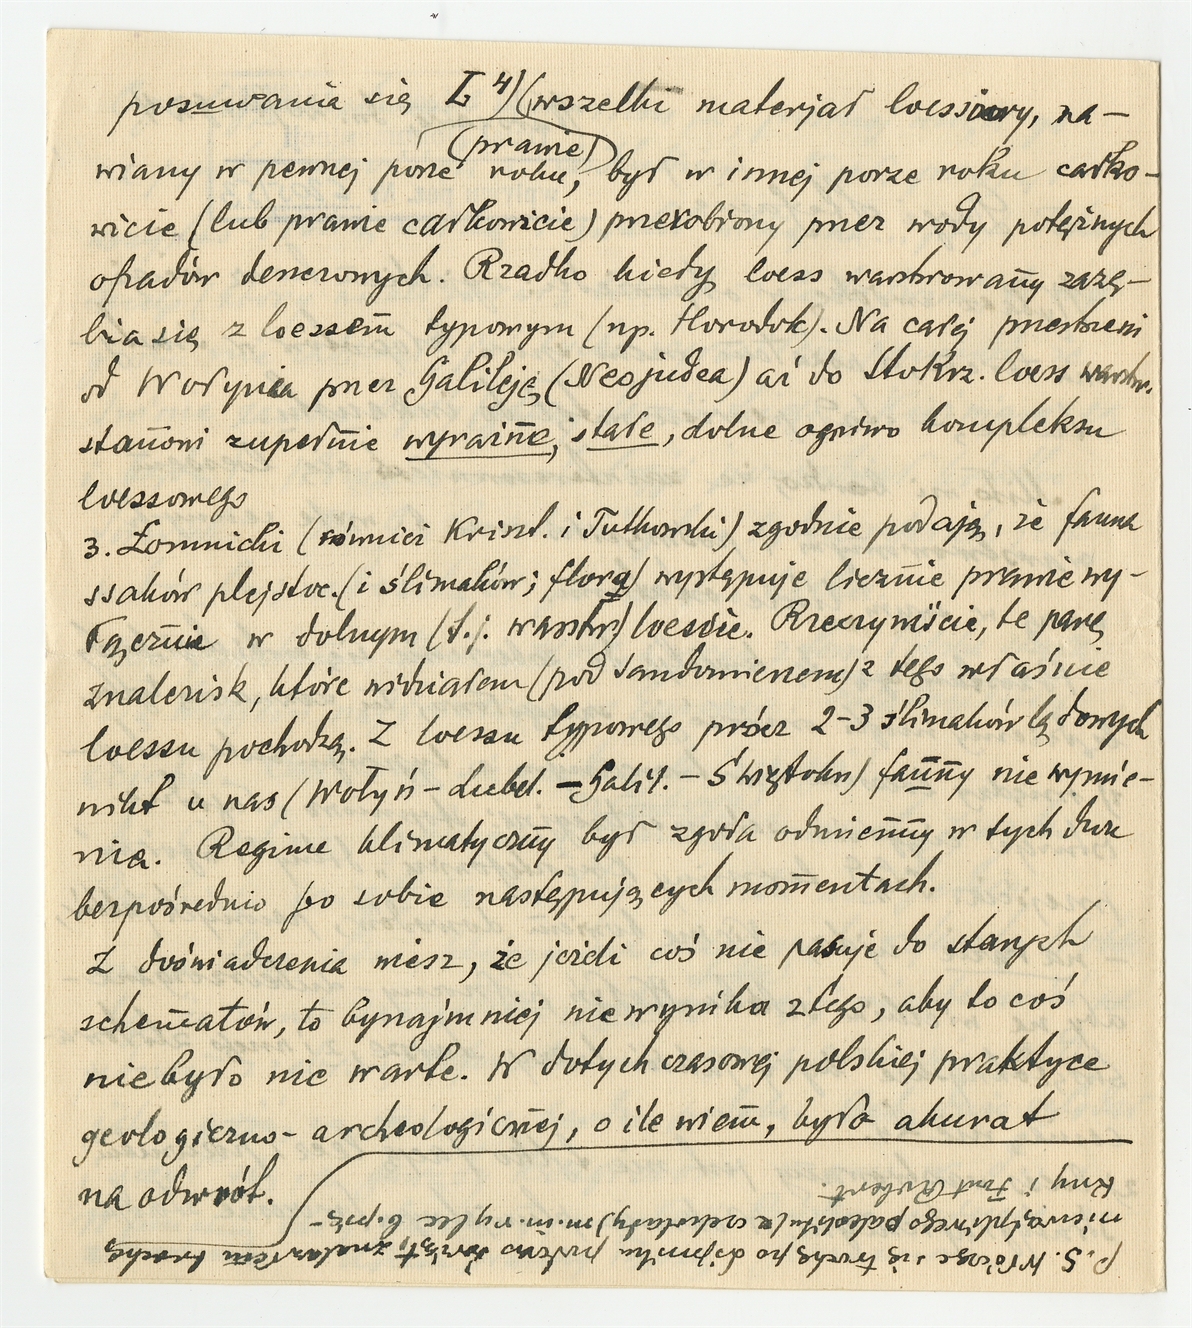 posuwania się L⁴) (wszelki materjał loessowy, na-
wiany w pewnej porze (prawie) roku, był w innej porze roku całko-
wicie (lub prawie całkowicie) przerobiony przez wody potężnych
opadów deszczowych. Rzadko kiedy loess warstwowany zazę-
bia się z loessem typowym (np. Horodok). Na całej przestrzeni
od Wołynia przez Galileję (Neojudea) aż do StoKrz. loess warstw.
stanowi zupełnie wyraźne, stałe, dolne ogniwo kompleksu
loessowego
3. Łomnicki (również Kriszt. i Tutkowski) zgodnie podają, że fauna
ssaków plejstoc. (i ślimaków; flora) występuje licznie prawie wy-
łącznie w dolnym (t.j. warstw) loessie. Rzeczywiście, te parę
znalezisk, które widziałem (pod Sandomierzem) z tego właśnie
loessu pochodzą. Z loessu typowego prócz 2-3 ślimaków lądowych
nikt u nas (Wołyń - Lubel. - Galil. - Świętokrz) fauny nie wymie-
nia. Regime klimatyczny był zgoła odmienny w tych dwu
bezpośrednio po sobie następujących momentach.
Z doświadczenia wiesz, że jeżeli coś nie pasuje do starych
schematów, to bynajmniej nie wynika z tego, aby to coś
nie było nic warte. W dotychczasowej polskiej praktyce
geologiczno-archeologicznej, o ile wiem, było akurat
na odwrót.
P.S. Włócząc się trochę po dyluwium podczas świąt, znalazłem trochę
niewątpliwego paleolitu (z czekolady) m.in. rylec b. pię-
kny i